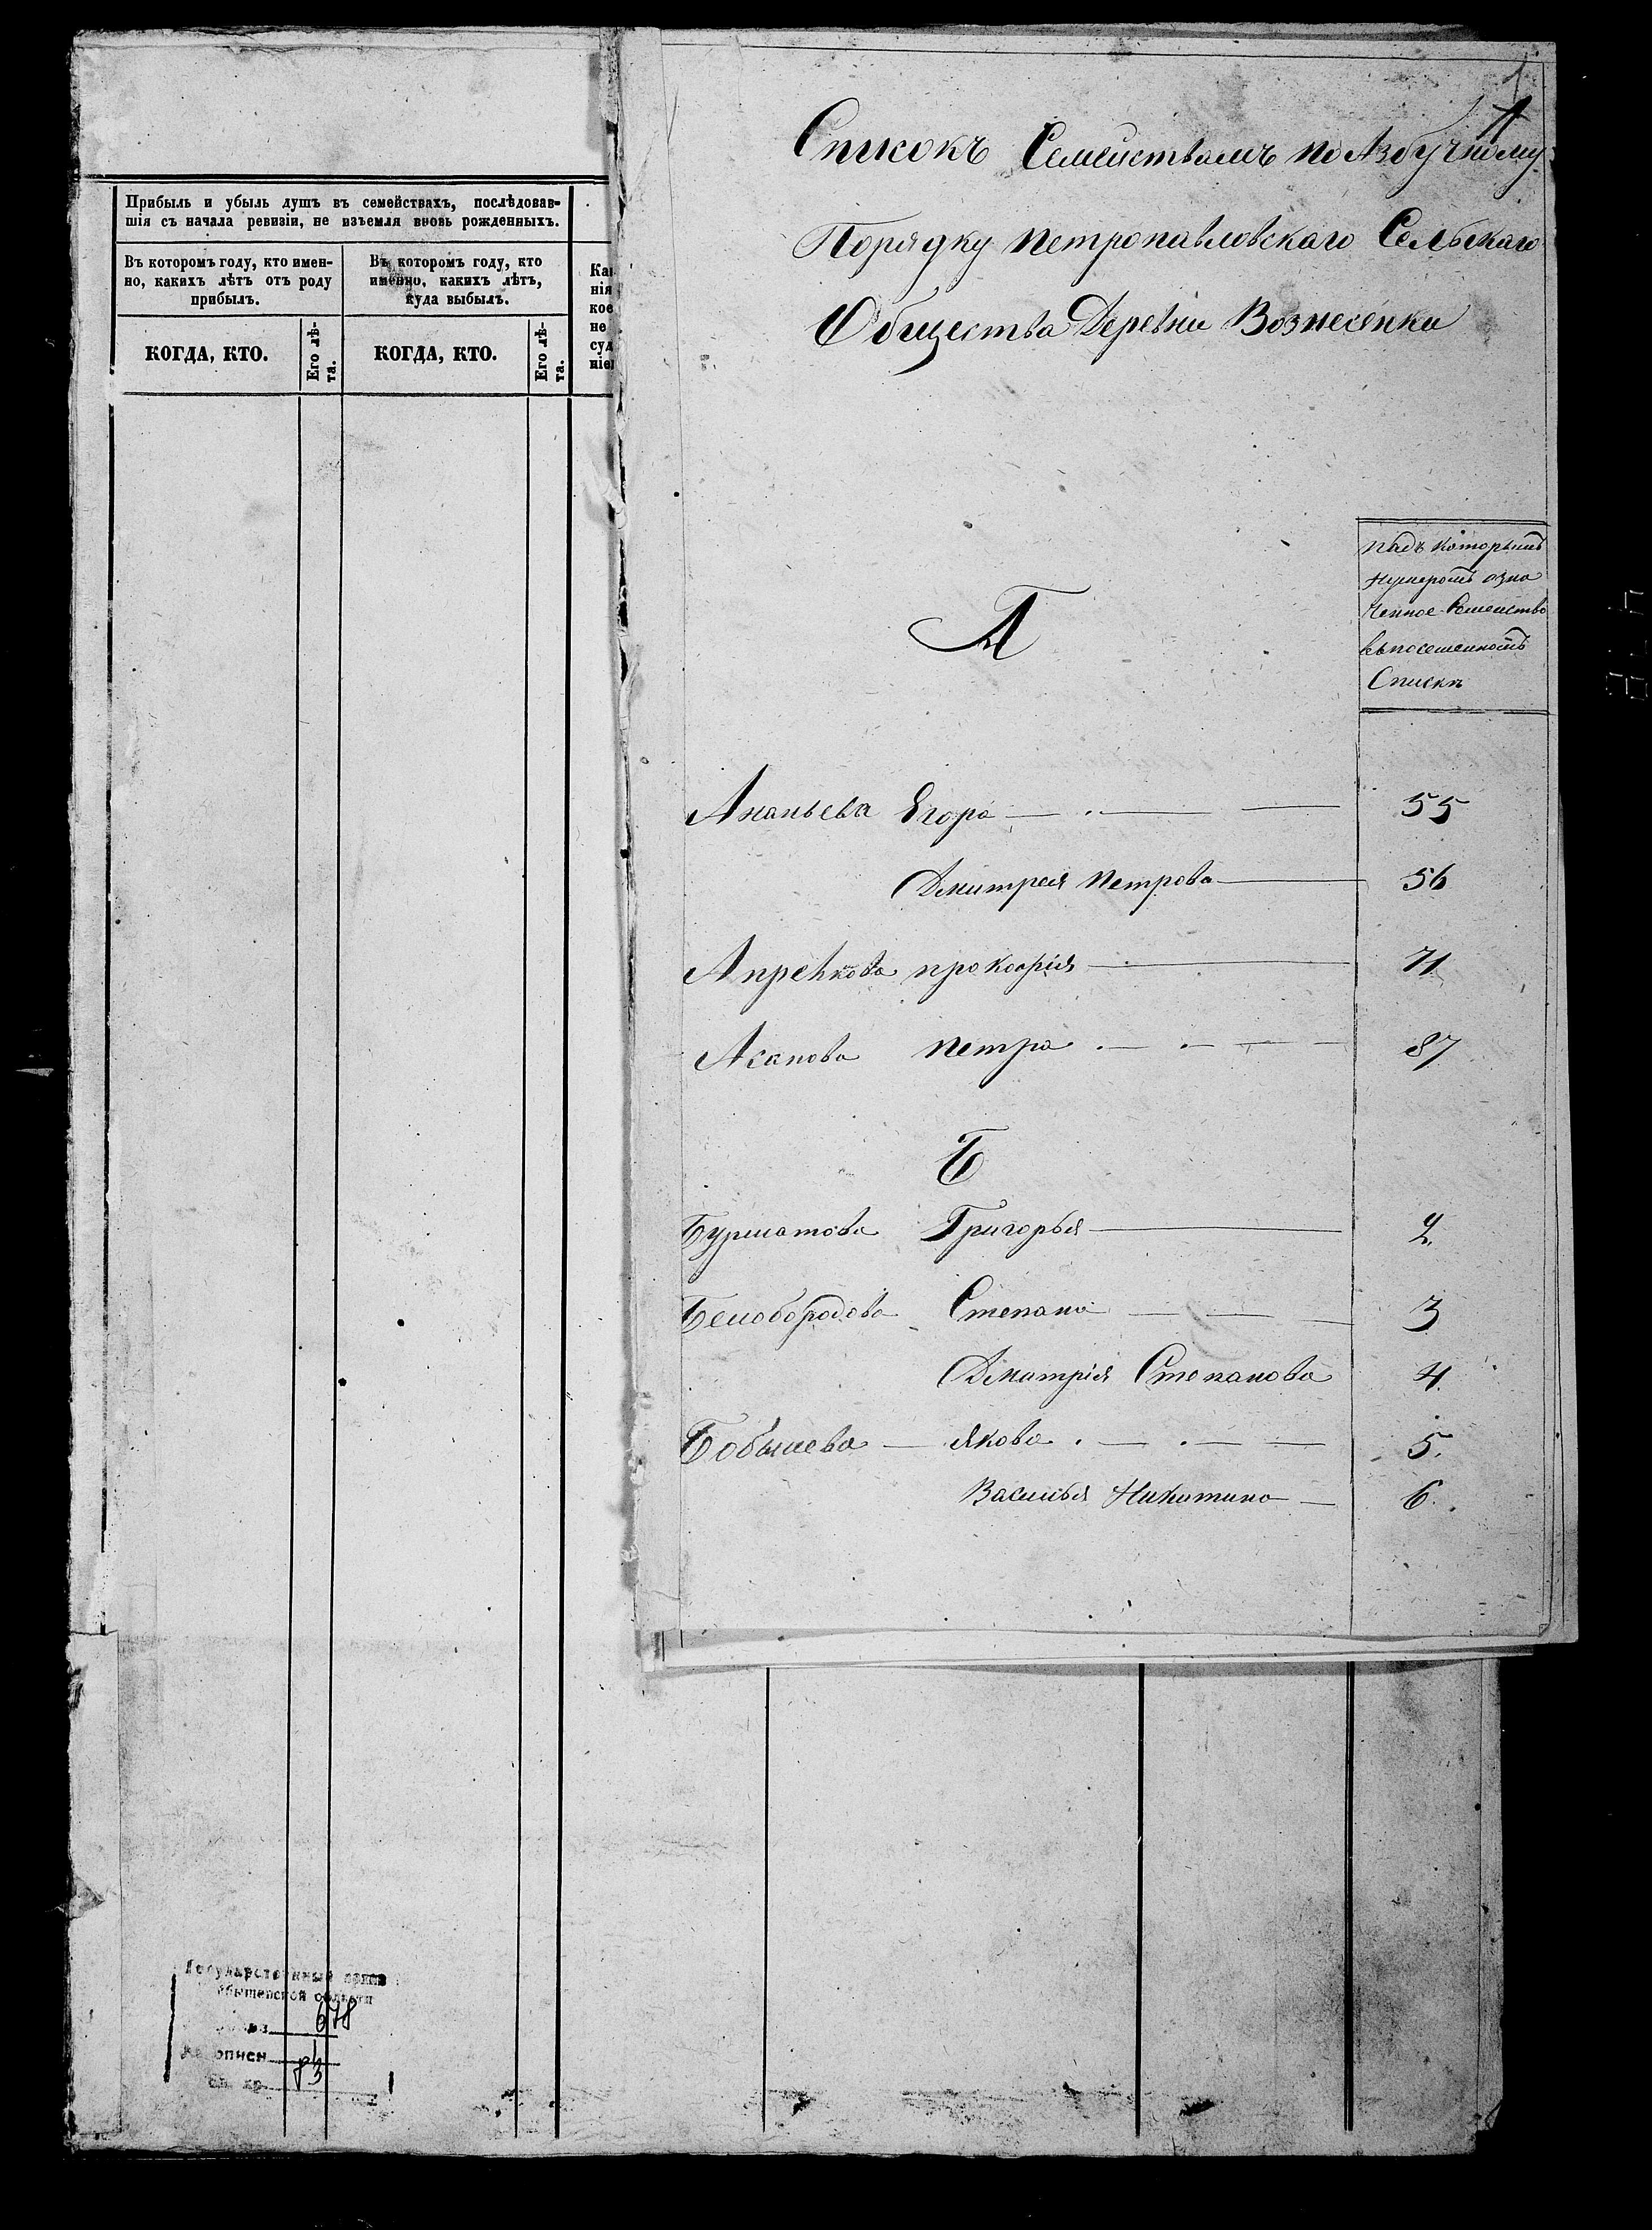 Прибыль и убыль душъ въ семействахъ, послѣдовав-
шія съ начала ревизіи, не изъемля вновь рожденныхъ.
Въ которомъ году, кто имен-
но, какихъ лѣтъ отъ роду
прибылъ.
Въ которомъ году, кто
именно, какихъ лѣтъ,
куда выбылъ.
КОГДА, КТО.
Его лѣ-
та.
КОГДА, КТО.
Его лѣ-
та.
нія
кое
не
суд
1
Списокъ Семействамъ по Азбучному
Порядку Петропавловскаго Сельскаго
Общества Деревни Вознесенки
Падъ которымъ
нумеромъ озна
ченное Семейство
въ посемейномъ
Спискѣ
А
Ананьева Егора 55
Дмитрея Петрова 56
прокофія 71
Асанова Петра 87
Б
Бурматова Григорья 2.
Белобородова Степана 3
Дмитрія Степанова 4.
Бобышева Якова 5.
Василья Никитина 6.
Государственный архив
области
678
описи